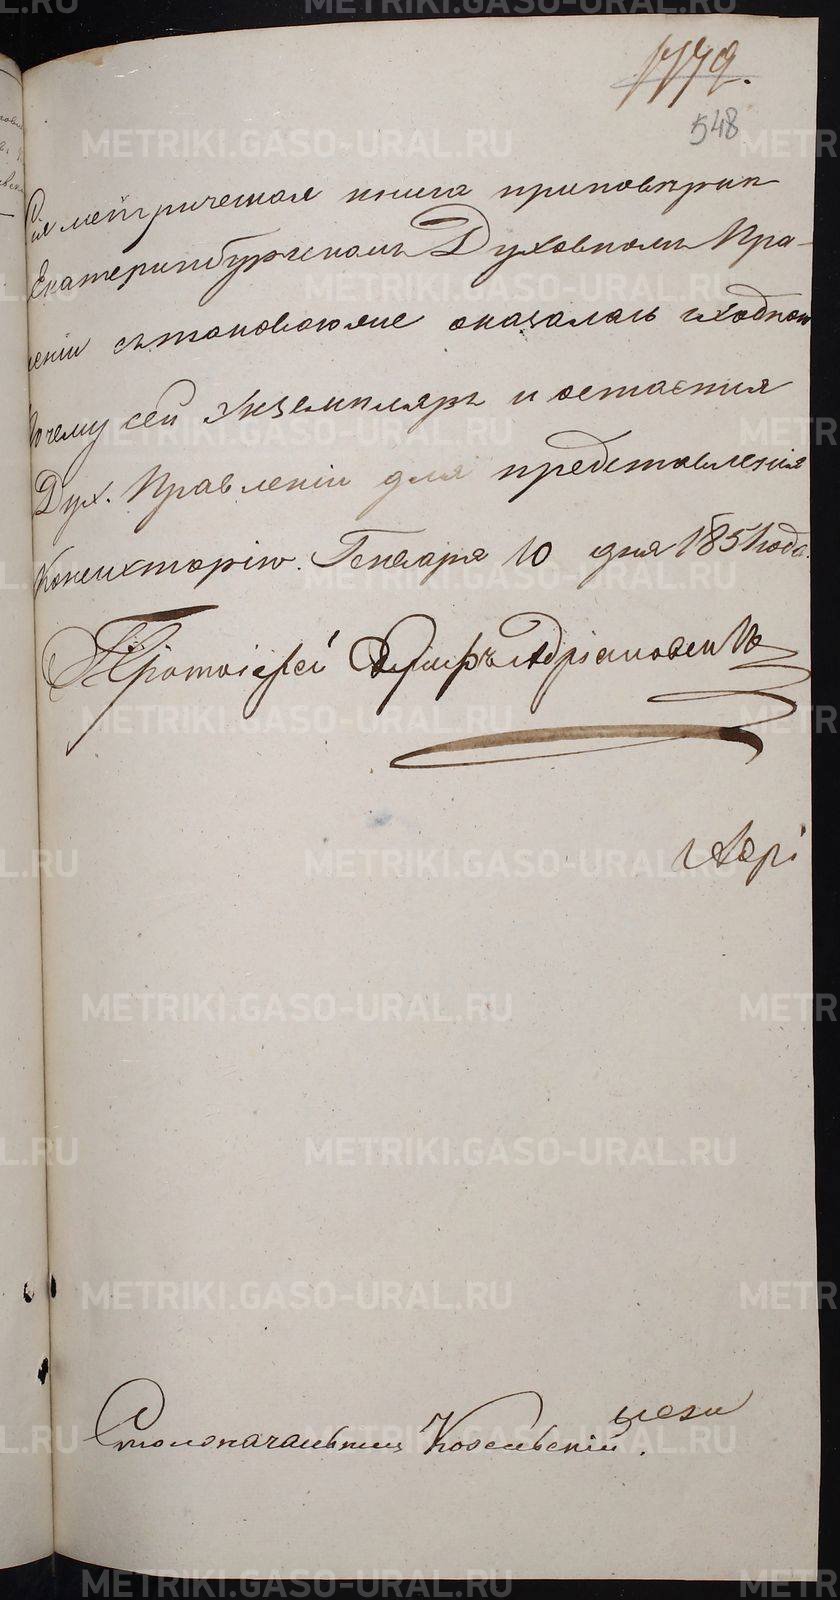 548
Сія метрическая книга приповѣркѣ
Екатеринбургскомъ Духовномъ Пра-
леніи сътаковоюже оказалась сходною
Почему сей экземпляръ и остается
Дух. Правленіи для представленія
Консисторію. Генваря 10 дня 1851 года.
Протоіерей Адріановскій
Столоначальникъ
METRIKI.GASO-URAL.RU